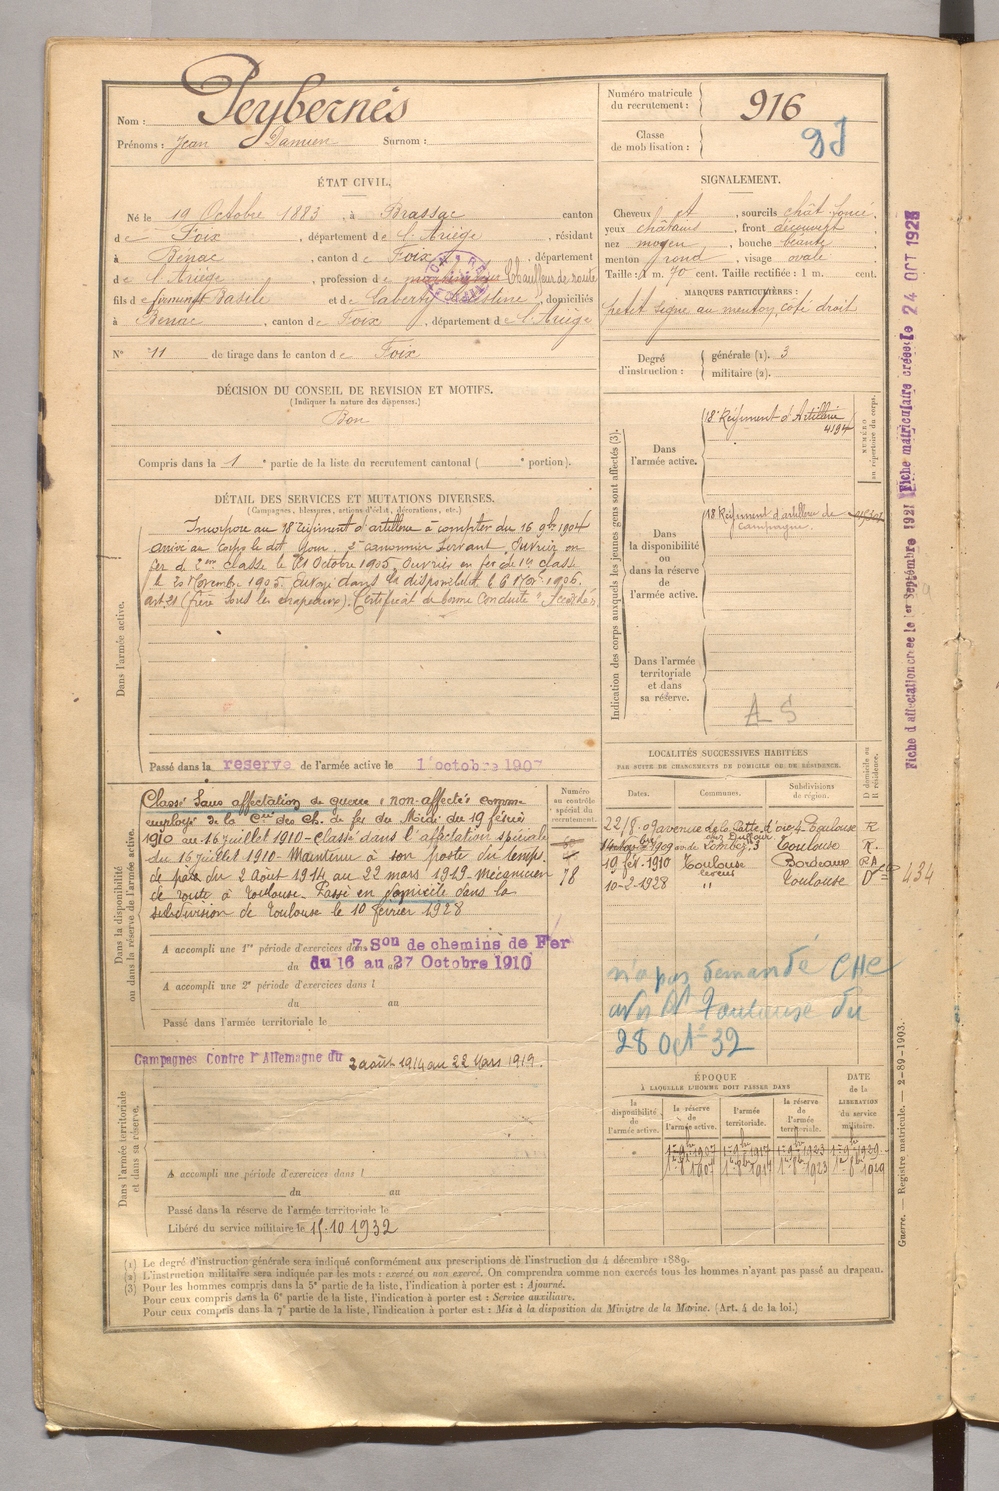 Nom : Peybernès
Prénoms : Jean Damien Surnom :
Numéro matricule du recrutement : 916
Classe de mobilisation :
ÉTAT CIVIL.
Né le 19 Octobre 1883, à Brassac canton
de Foix, département de l'Ariège, résidant
à Benac, canton de Foix, département
de l'Ariège, profession de Chauffeur de route
fils de Basile et de Laberty, domiciliés
à Benac, canton de Foix, département de l'Ariège
N° 11 de tirage dans le canton de Foix
SIGNALEMENT.
Cheveux et, sourcils chât foncé.
yeux châtains, front découvert
nez moyen, bouche béante
menton rond, visage ovale
Taille : 1 m. 70 cent. Taille rectifiée : 1 m. cent.
MARQUES PARTICULIÈRES :
petit signe au menton, côté droit
Degré d'instruction : générale (1). 3
militaire (2).
DÉCISION DU CONSEIL DE REVISION ET MOTIFS.
(Indiquer la nature des dispenses.)
Bon
Compris dans la 1e partie de la liste du recrutement cantonal ( e portion).
DÉTAIL DES SERVICES ET MUTATIONS DIVERSES.
(Campagnes, blessures, actions d'éclat, décorations, etc.)
Dans l'armée active.
Incorporé au 18e régiment d'artillerie à compter du 16 9bre 1904
arrivé au corps le dit jour. 2e canonnier servant. Ouvrier en
fer de 2me classe le 21 Octobre 1905. Ouvrier en fer de 1re classe
le 20 Novembre 1905. Envoyé dans la disponibilité le 6 1906.
art. 21 (frère sous les drapeaux). Certificat de bonne Conduite "Accordé".
Passé dans la réserve de l'armée active le 1 octobre 1907
Indication des corps auxquels les jeunes gens sont affectés (3).
Dans l'armée active.
18e Régiment d'Artillerie
4194
NUMÉRO au répertoire du corps.
Dans la disponibilité ou dans la réserve de l'armée active.
18 Régiment d'artillerie de
campagne.
Dans l'armée territoriale et dans sa réserve.
A S
Dans la disponibilité ou dans la réserve de l'armée active.
Classé Sans affectation de guerre "non-affecté" comme
employé de la Cie des Ch. de fer du Midi du 19 février
1910 au 16 juillet 1910 - Classé dans l'affectation spéciale
du 16 juillet 1910 - Maintenu à son poste du temps
de paix du 2 août 1914 au 22 mars 1919 - Mécanicien
de route à Toulouse. Passé en domicile dans la
subdivision de Toulouse le 10 février 1928
Numéro au contrôle spécial du recrutement.
78
A accompli une 1re période d'exercices dans 7 Son de chemins de Fer
du 16 au 27 Octobre 1910
A accompli une 2e période d'exercices dans l
du au
Passé dans l'armée territoriale le
LOCALITÉS SUCCESSIVES HABITÉES
PAR SUITE DE CHANGEMENTS DE DOMICILE OU DE RÉSIDENCE.
Dates. Communes. Subdivisions de région. D domicile ou R résidence.
22/8.09 avenue de la Patte d'oie 4 Toulouse R
1909 de Lombez 3 Toulouse R.
19 fév. 1910 Toulouse Bordeaux RA
10-2-1928 " Toulouse D
434
n'a pas demandé CHC
avis Toulouse du
28 Oct 32
Dans l'armée territoriale et dans sa réserve.
Campagnes Contre l'Allemagne du 2 août 1914 au 22 Mars 1919.
A accompli une période d'exercices dans l
du au
Passé dans la réserve de l'armée territoriale le
Libéré du service militaire le 15.10 1932
ÉPOQUE
À LAQUELLE L'HOMME DOIT PASSER DANS
la disponibilité de l'armée active.
la réserve de l'armée active.
l'armée territoriale.
la réserve de l'armée territoriale.
DATE de la LIBÉRATION du service militaire.
1907 1917 1923 1929
1907 1917 1923 1929
(1) Le degré d'instruction générale sera indiqué conformément aux prescriptions de l'instruction du 4 décembre 1889.
(2) L'instruction militaire sera indiquée par les mots : exercé ou non exercé. On comprendra comme non exercés tous les hommes n'ayant pas passé au drapeau.
(3) Pour les hommes compris dans la 5e partie de la liste, l'indication à porter est : Ajourné.
Pour ceux compris dans la 6e partie de la liste, l'indication à porter est : Service auxiliaire.
Pour ceux compris dans la 7e partie de la liste, l'indication à porter est : Mis à la disposition du Ministre de la Marine. (Art. 4 de la loi.)
Fiche d'affectation créée le 1er Septembre 1921 Fiche matriculaire créée le 24 OCT 1928
Guerre. — Registre matricule. — 2-89-1903.